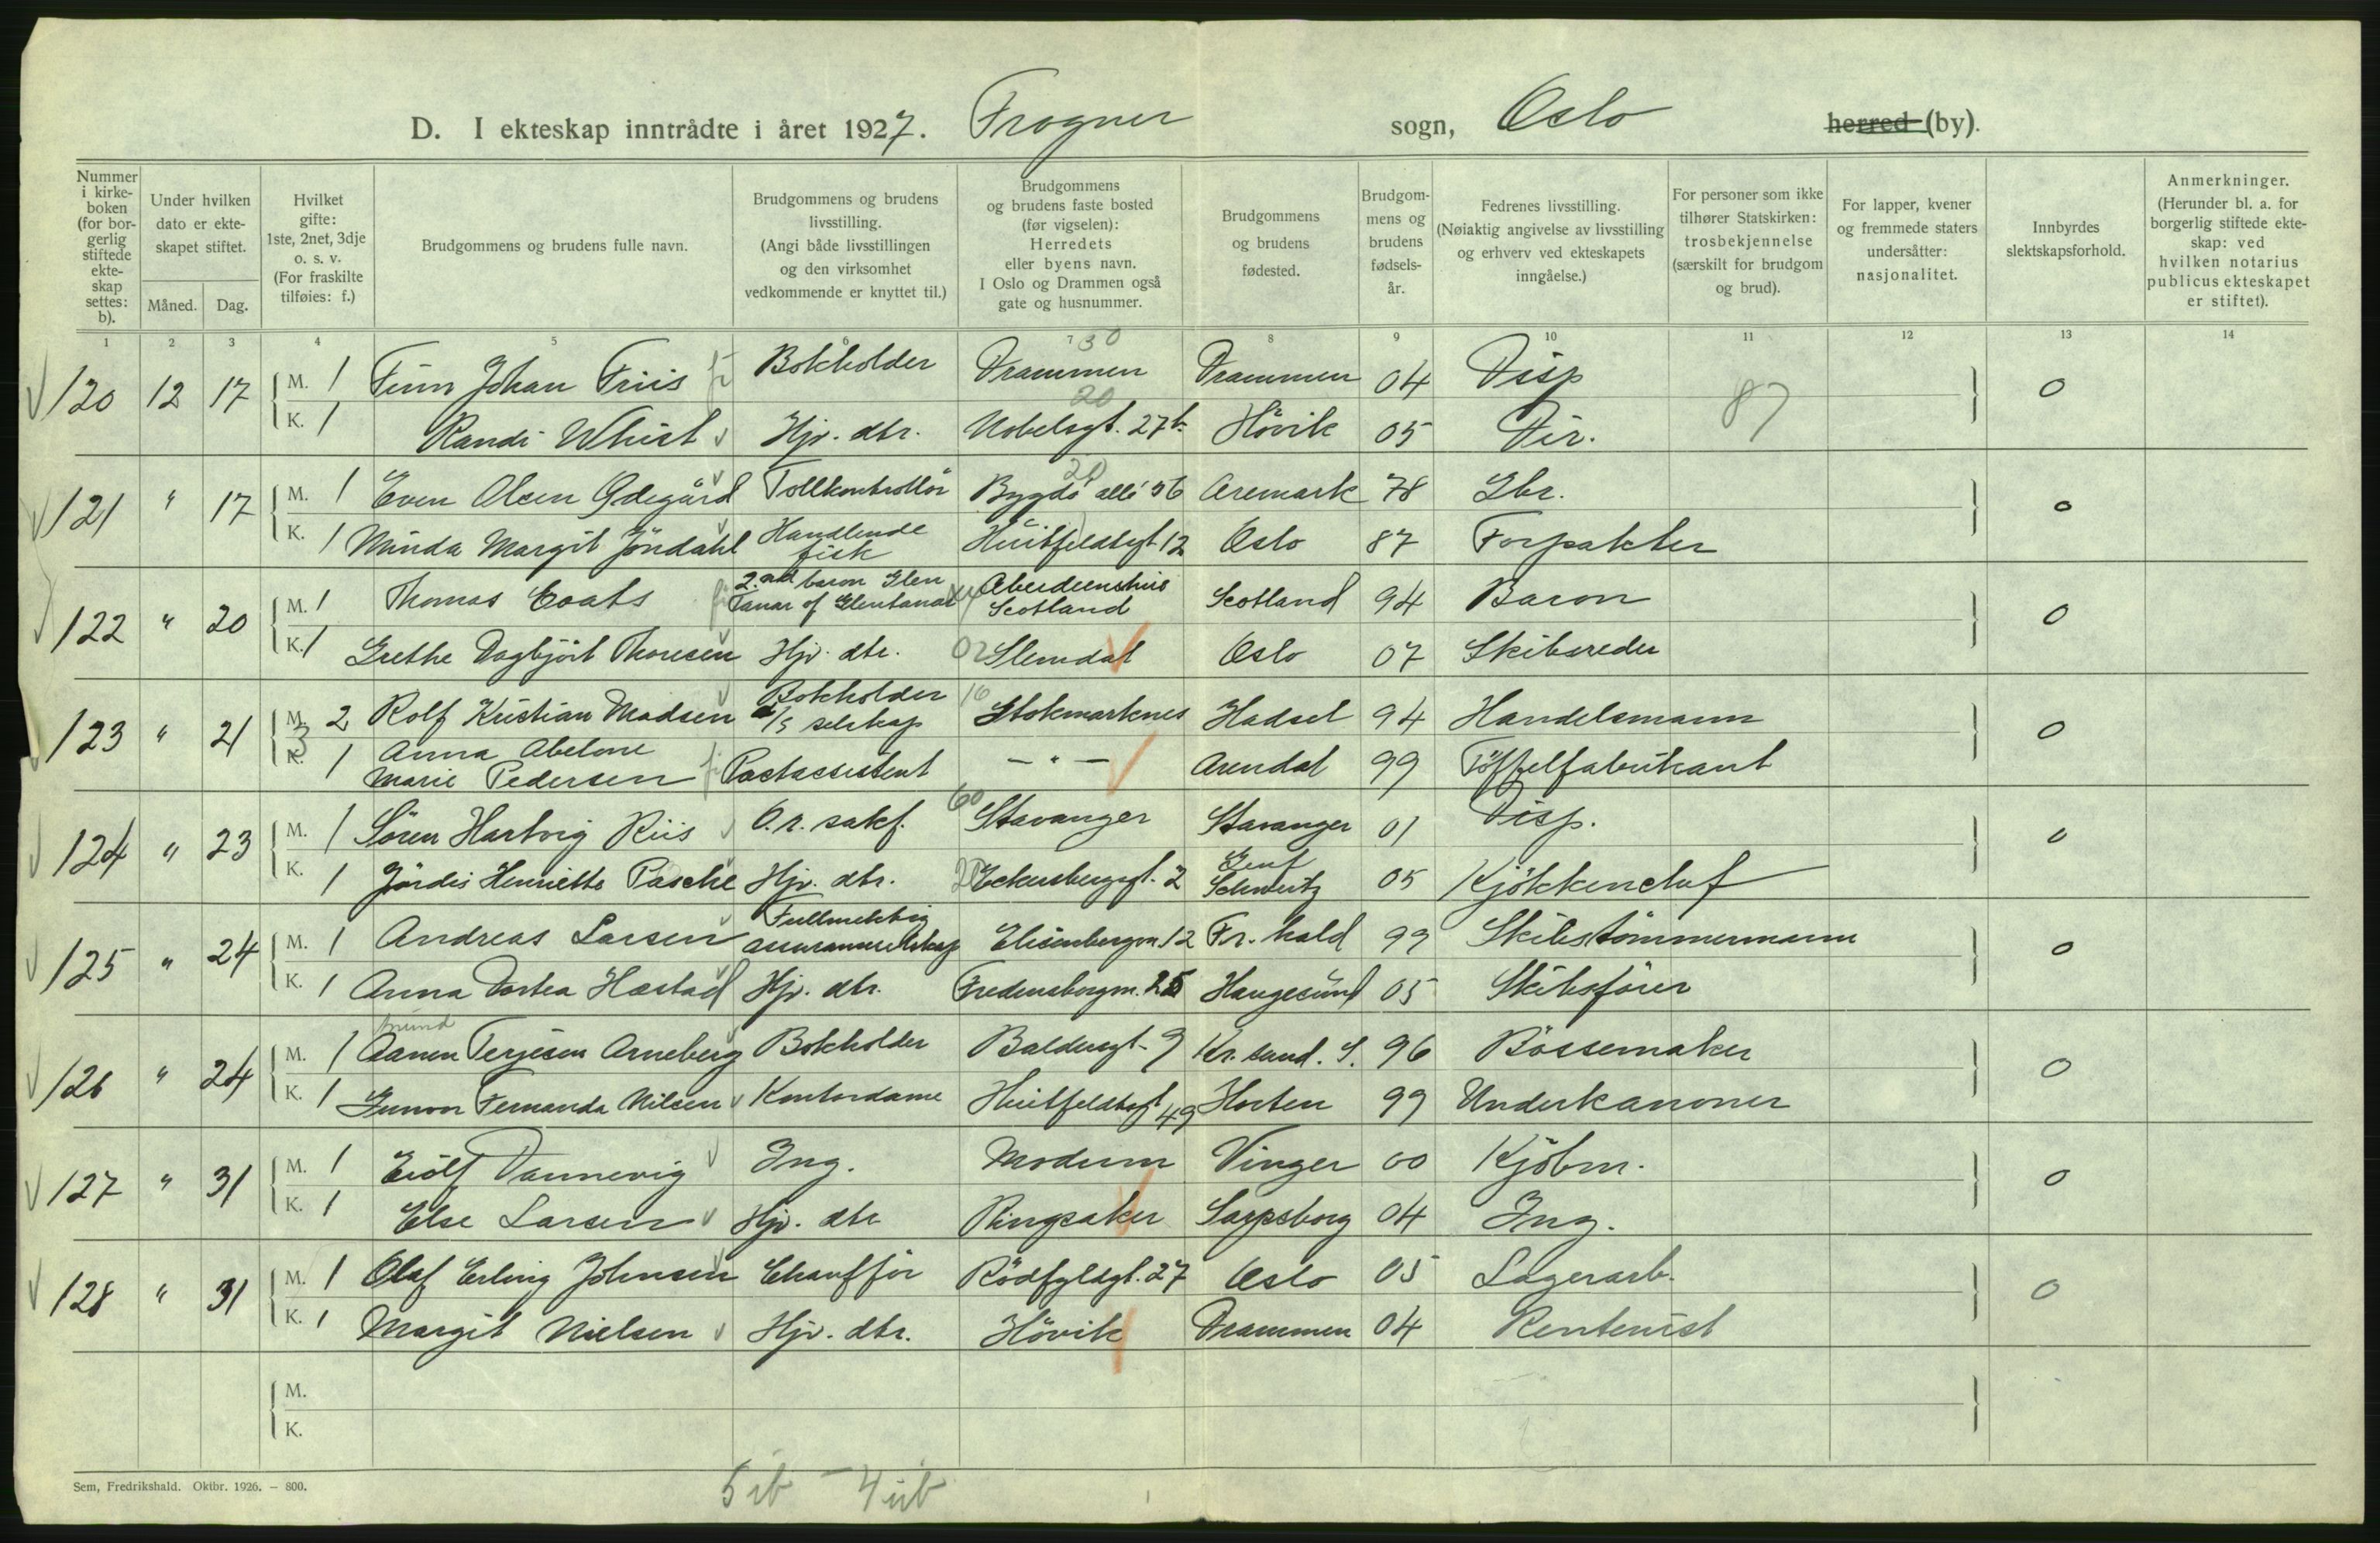 D. I ekteskap inntrådte i året 1927. Frogner sogn, Oslo herred (by).
Nummer i kirkeboken (for borgerlig stiftede ekteskap settes: b).
Under hvilken dato er ekteskapet stiftet.
Måned. Dag.
Hvilket gifte: 1ste, 2net, 3dje o. s. v. (For fraskilte tilføies: f.)
Brudgommens og brudens fulle navn.
Brudgommens og brudens livsstilling. (Angi både livsstillingen og den virksomhet vedkommende er knyttet til.)
Brudgommens og brudens faste bosted (før vigselen): Herredets eller byens navn. I Oslo og Drammen også gate og husnummer.
Brudgommens og brudens fødested.
Brudgommens og brudens fødselsår.
Fedrenes livsstilling. (Nøiaktig angivelse av livsstilling og erhverv ved ekteskapets inngåelse.)
For personer som ikke tilhører Statskirken: trosbekjennelse (særskilt for brudgom og brud).
For lapper, kvener og fremmede staters undersåtter: nasjonalitet.
Innbyrdes slektskapsforhold.
Anmerkninger. (Herunder bl. a. for borgerlig stiftede ekteskap: ved hvilken notarius publicus ekteskapet er stiftet).
1 2 3 4 5 6 7 8 9 10 11 12 13 14
30
120 12 17 M. 1 Finn Johan Friis Bokholder Drammen Drammen 04 Disp 0
20 87
K. 1 Randi Whist Hjv. dtr. Nobelsgt. 27b Hövik 05 Dir.
20
121 " 17 M. 1 Even Olsen Ödegård Tollkontrollör Bygdö allé 56 Aremark 78 Gbr. 0
K. 1 Minda Margit Jöndahl Handlende fisk Huitfeldtsgt 12 Oslo 87 Forpakter
122 " 20 M. 1 Thomas Coats 2.nd baron Glen Tanar of Glentanar Aberdeenshire Scotland Scotland 94 Baron 0
K. 1 Grethe Dagbjört Thoresen Hjv. dtr. 02 Slemdal Oslo 07 Skibsreder
123 " 21 M. 2 Rolf Kristian Madsen Bokholder a/s selskap 16 Stokmarknes Hadsel 94 Handelsmann 0
3
K. 1 Anna Abelone Marie Pedersen Postassistent — " — Arendal 99 Töffelfabrikant
124 " 23 M. 1 Sören Hartvig Riis O.r. sakf. 60 Stavanger Stavanger 01 Disp. 0
K. 1 Jördis Henriette Pasche Hjv. dtr. 20 Eckersbergsgt. 2 Genf Schweitz 05 Kjökkenchef
125 " 24 M. 1 Andreas Larsen Fullmektig assuranseselskap Elisenbergvn. 12 Fr.hald 99 Skibstömmermann 0
K. 1 Anna Dortea Hastad Hjv. dtr. Fredensborgvn. 25 Haugesund 05 Skibsförer
126 " 24 M. 1 Aanen Terjesen Arneberg Bokholder Baldersgt. 9 Kr.sund. S. 96 Bössemaker 0
K. 1 Gunvor Fernanda Nilsen Kontordame Huitfeldtsgt 49 Horten 99 Underkanoner
127 " 31 M. 1 Eiolf Dannevig Ing. Modum Vinger 00 Kjöbm. 0
K. 1 Else Larsen Hjv. dtr Ringsaker Sarpsborg 04 Ing.
128 " 31 M. 1 Olaf Erling Johnsen Chaufför Rödfyldgt. 27 Oslo 05 Lagerarb. 0
K. 1 Margit Nielsen Hjv. dtr. Hövik Drammen 04 Rentenist
M.
K.
Sem, Fredrikshald. Oktbr. 1926. – 800.
5 ib – 4 uib